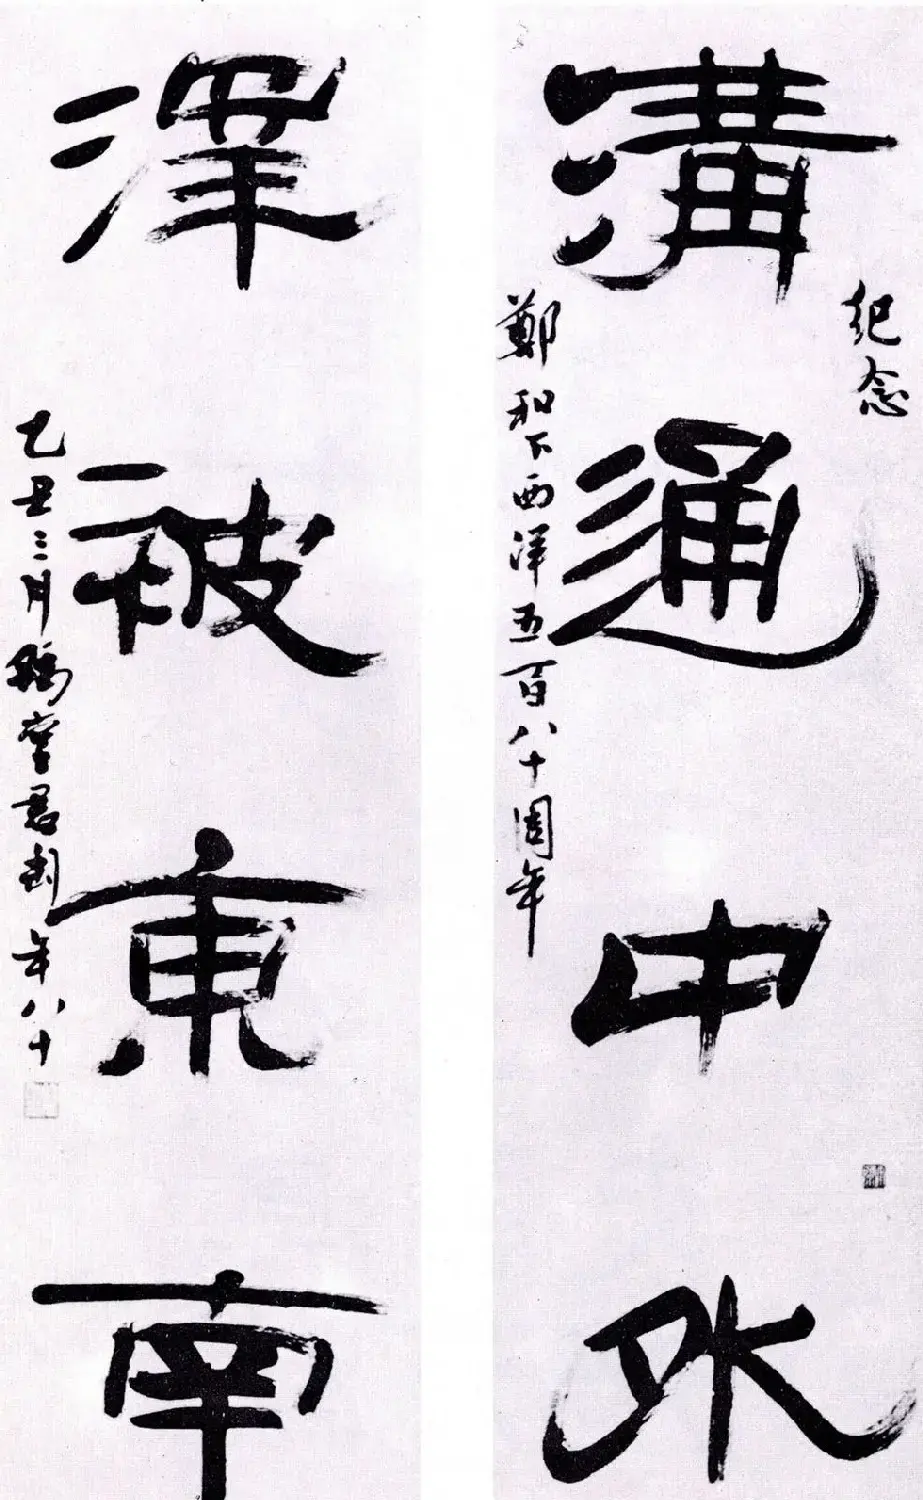 紀念
溝通中外
鄭和下西洋五百八十周年
澤被東南
乙丑三月豫堂君匋年八十